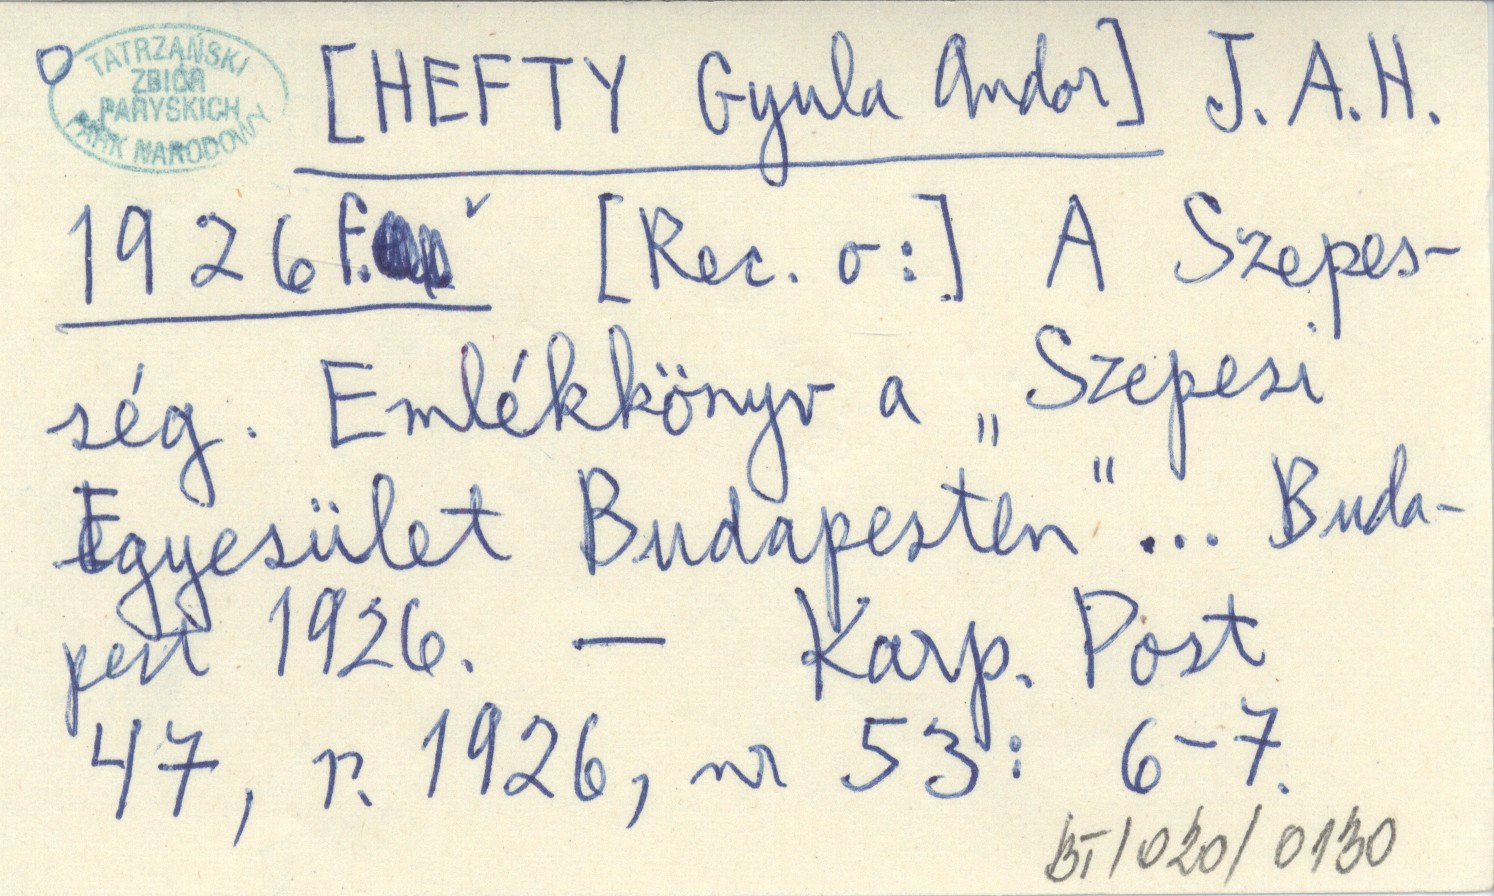 TATRZAŃSKI
ZBIÓR
PARYSKICH
PARK NARODOWY
[HEFTY Gyula Andor] J. A. H.
1926 f. [Rec. o:] A Szepes-
ség. Emlékkönyv a „Szepesi
Egyesület Budapesten"... Buda-
pest 1926. — Karp. Post
47, r. 1926, nr 53: 6-7.
BT/020/0130